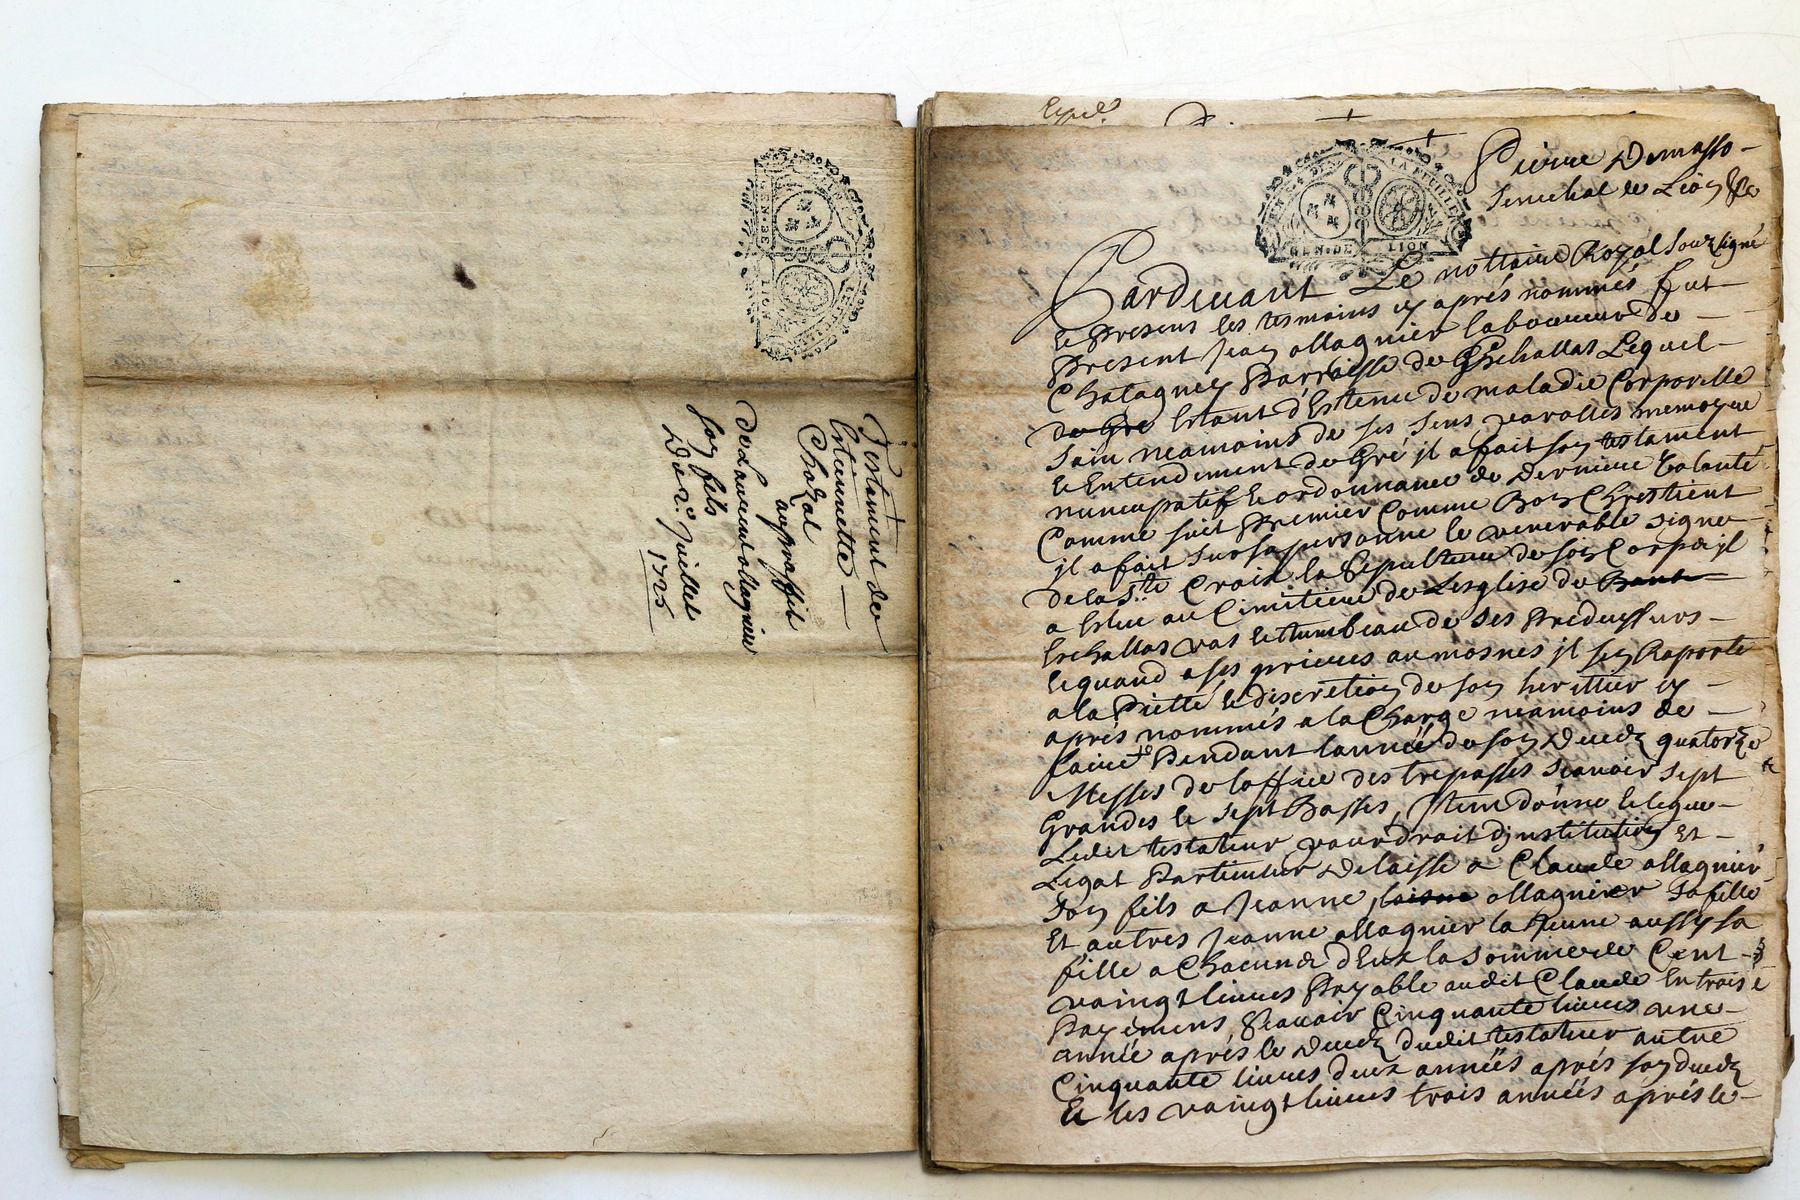 Testament de
Estiennette
Chazal
au proffit
de Laurent ollagnier
son fils
Du 2e. Juillet
1725
GEN. DE LION
LA FEUILLE
GEN. DE LION
Pierre Demasso
Senechal de Lion &c
Pardevant Le nottaire Royal Soubsigné
et Presens les tesmoins cy aprés nommés fut
Present Jean ollagnier laboureur de
Chatagney Parroisse de Eschallas Lequel
de Gre Estant d'Estenu de maladie Corporelle
Sain neamoins de ses Sens parolles memoyre
et Entendement de Gré il a fait son testament
nuncupatif et ordonnance de derniere Volonté
Comme suit Premier Comme Bon Chrestient
il a fait sur sa personne le venerable signe
de la Ste Croix la Sepulteure de son Corps il
a Eslue au Cimitiere de Lesglise de
Eschallas vas et tumbeau de ses Predecessurs
et quand a ses prieres aumosnes il sen Raporte
a la Pietté et discretion de son herittier cy
aprés nommés a la Charge neamoins de
faire Pendant lannéé de son Decedz quatorze
Messes de loffice des trepasses Scavoir Sept
Grandes et Sept Basses, Item donne et legue
Ledit testateur par droit d'institution Et
Legat Particulier Delaisse a Claude ollagnier
Son fils a Jeanne ollagnier Sa fille
Et autres Jeanne ollagnier la Jeune aussy sa
fille a Chacun d'Eux la Somme de Cent
vaingt livres Payable audit Claude En trois
Payemens Scavoir Cinquante livres une
année aprés le Decedz dudit testateur autre
Cinquante livres deux annéés aprés son decedz
Et les vaingt livres trois annéés aprés le